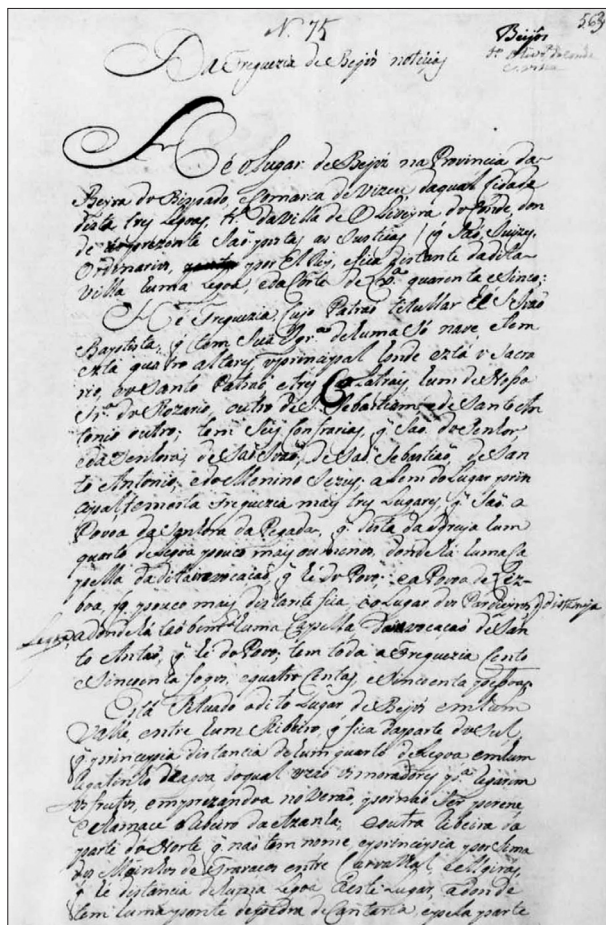 N. 75
563
Beijós
Da Freguezia de Beijós noticias
He o lugar de Beijós na Provincia da
Beyra do Bispado, e Comarca de Vizeu, da qual Cidade
dista tres legoas, tr.º da Villa de Oliveyra do Conde, don
de prezente saõ postas as Justiças, q saõ Juizes
Ordinarios, por El Rey, e fica distante da dita
villa huma legoa, e da Corte de Lx.ª quarenta e sinco;
He Freguezia, cujo Patraõ titullar he S. Joaõ
Baptista, q tem sua Igr.ª de huma só nave, e tem
esta quatro altares, o principal honde está o Sacra
rio, e o Santo Patraõ, e tres Colatrais, hum de Nossa
Sr.ª do Rozario, outro de S. Sebastiam, e de Santo An
tonio outro; tem seis Confrarias, q saõ do Senhor,
e da Senhora, de Saõ Joaõ, de Saõ Sebastiaõ, de San
to Antonio, e do Menino Jezus; alem do lugar prin
cipal tem esta freguezia mais tres lugares, q saõ a
Povoa da Senhora da Pegada, q dista da Igreja hum
quarto de legoa pouco mais ou menos, donde há huma Ca
pella da dita invocacaõ, q he do Povo; e a Povoa de Lix-
boa, q pouco mais distante fica, e o lugar dos Pardieyros, distancia
legoa, adonde há taõ bem huma Capella da invocaçaõ de San
to Antaõ, q he do Povo; tem toda a Freguezia Cento
e sincoenta fogos, e quatro Centas, e sincoenta pessoas
Está situado o dito lugar de Beijós em hum
Valle, entre hum Ribeiro, q fica da parte do Sul,
q principia distancia de hum quarto de legoa em hum
de agoa do qual uzaõ os moradores p.ª regarem
os frutos, emprezando a no Veraõ, por naõ ser perene
e chamace Ribeiro da Azanha, e outra Ribeira da
parte do Norte q naõ tem nome, e principia por sima
dos Moinhos de Travaços entre Carvalhal, e
q he distancia de huma legoa deste lugar, adonde
tem huma ponte de pedra de Cantaria, e pela parte